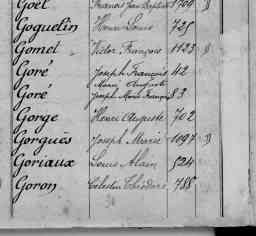 Goët François Jean Baptiste 1709
Goguelin Henri Louis 725
Gomet Victor François 1123 d
Goré Joseph François 42
Marie Auguste
Goré Joseph Marie François 83
Gorge Henri Auguste 702
Gorgués Joseph Marie 1097 d
Goriaux Louis Alain 524
Goron Célestin Théodore 788